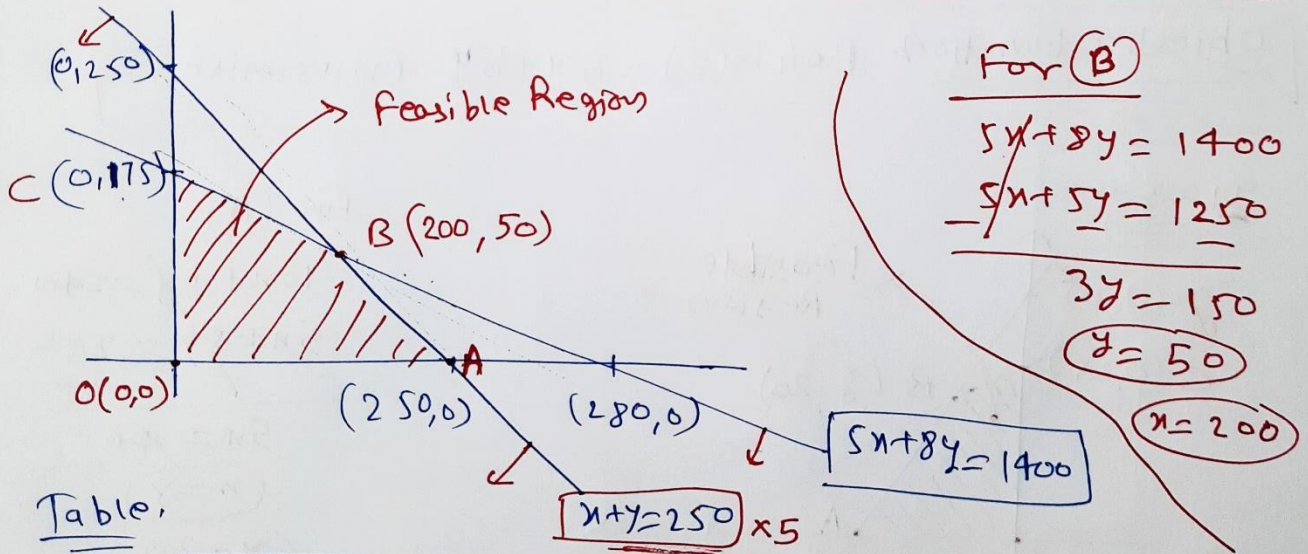 (0,250)
Feasible Region
C (0,175)
B (200, 50)
A
O(0,0)
(250,0)
(280,0)
5x+8y=1400
x+y=250 ×5
Table.
For B
5x+8y= 1400
5x+5y= 1250
3y= 150
y= 50
x= 200